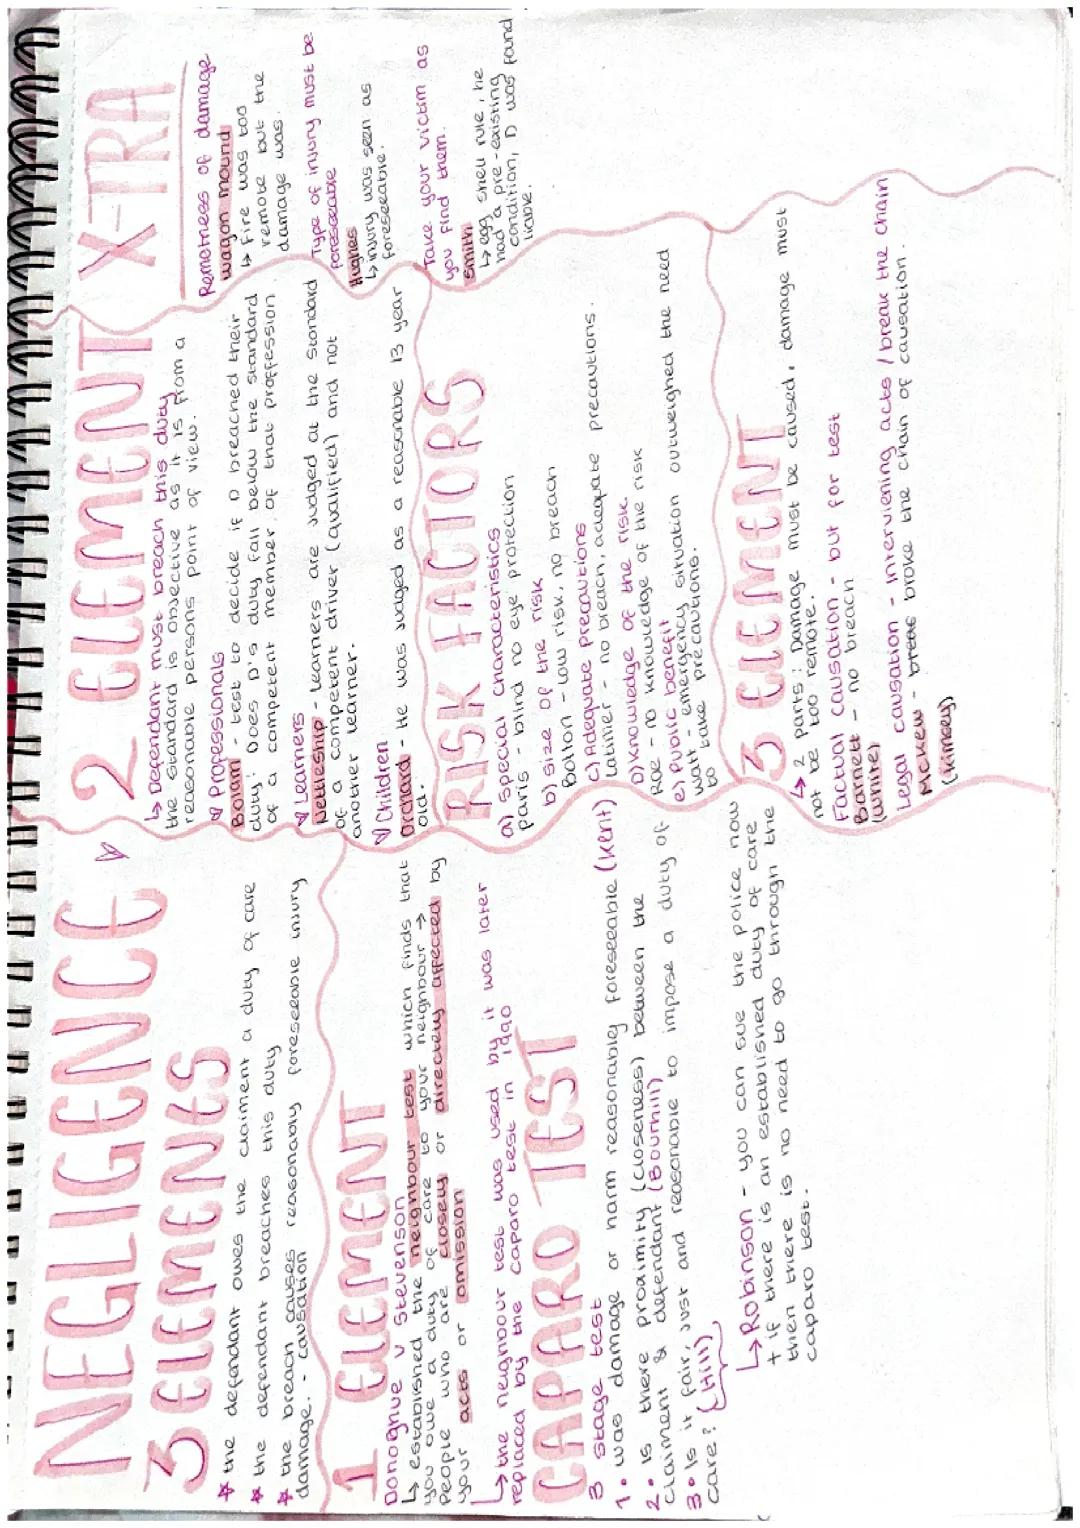 NEGLIGENCE
3 ELEMENES
the defendant owes the claiment a duty of care
the defendant breaches this duty
the breach causes reasonably foreseeable injury
damage. - causation
1 ELEMENT
Donoghue v Stevenson
↳ established the neighbour test which finds that
you owe a duty of care to your neighbour →
People who are closely or directely affected by
your acts or omission
↳ the neighbour test was used by it was later
replaced by the caparo test in 1990
CAPARO TEST
3 stage test
1. was damage or harm reasonably foreseeable (Kent)
2. is there proximity (closeness) between the
claiment & defendant (Bournhill)
3. Is it fair, just and reasonable to impose a duty of
care? (Hill)
↳ Robinson - you can sue the police now
+ if there is an established duty of care
then there is no need to go through the
caparo test.
2 ELEMENT
↳ Defendant must breach this duty
the standard is objective as it is from a
reasonable persons point of view.
Professionals
Bolam - test to decide if D breached their
duty: Does D's duty fall below the standard
of a competent member of that proffession
Learners
Nettleship - learners are judged at the standard
of a competent driver (qualified) and not
another learner.
Children
Orchard - He was judged as a reasonable 13 year
old.
RISK FACTORS
a) Special characteristics
paris - blind no eye protection
b) size of the risk
Bolton - low risk, no breach
c) Adequate precautions
Latimer - no breach, adequate precautions.
D) knowledge of the risk
Roe - no knowledge of the risk
e) Public benefit
watt - emergency situation outweighed the need
to take precautions.
3 ELEMENT
↳ 2 parts: Damage must be caused, damage must
not be too remote.
Factual causation - but for test
Barnett - no breach
(white)
Legal causation - interviening acts / break the chain
McKew - breas broke the chain of causation.
(Kimsey)
X-TRA
Remotness of damage
wagon mound
↳ Fire was too
remote but the
damage was.
Type of injury must be
foreseeable
Hughes
↳ injury was seen as
foreseeable.
Take your victim as
you find them.
Smith
↳ egg shell rule, he
had a pre-existing
condition, D was found
liable.